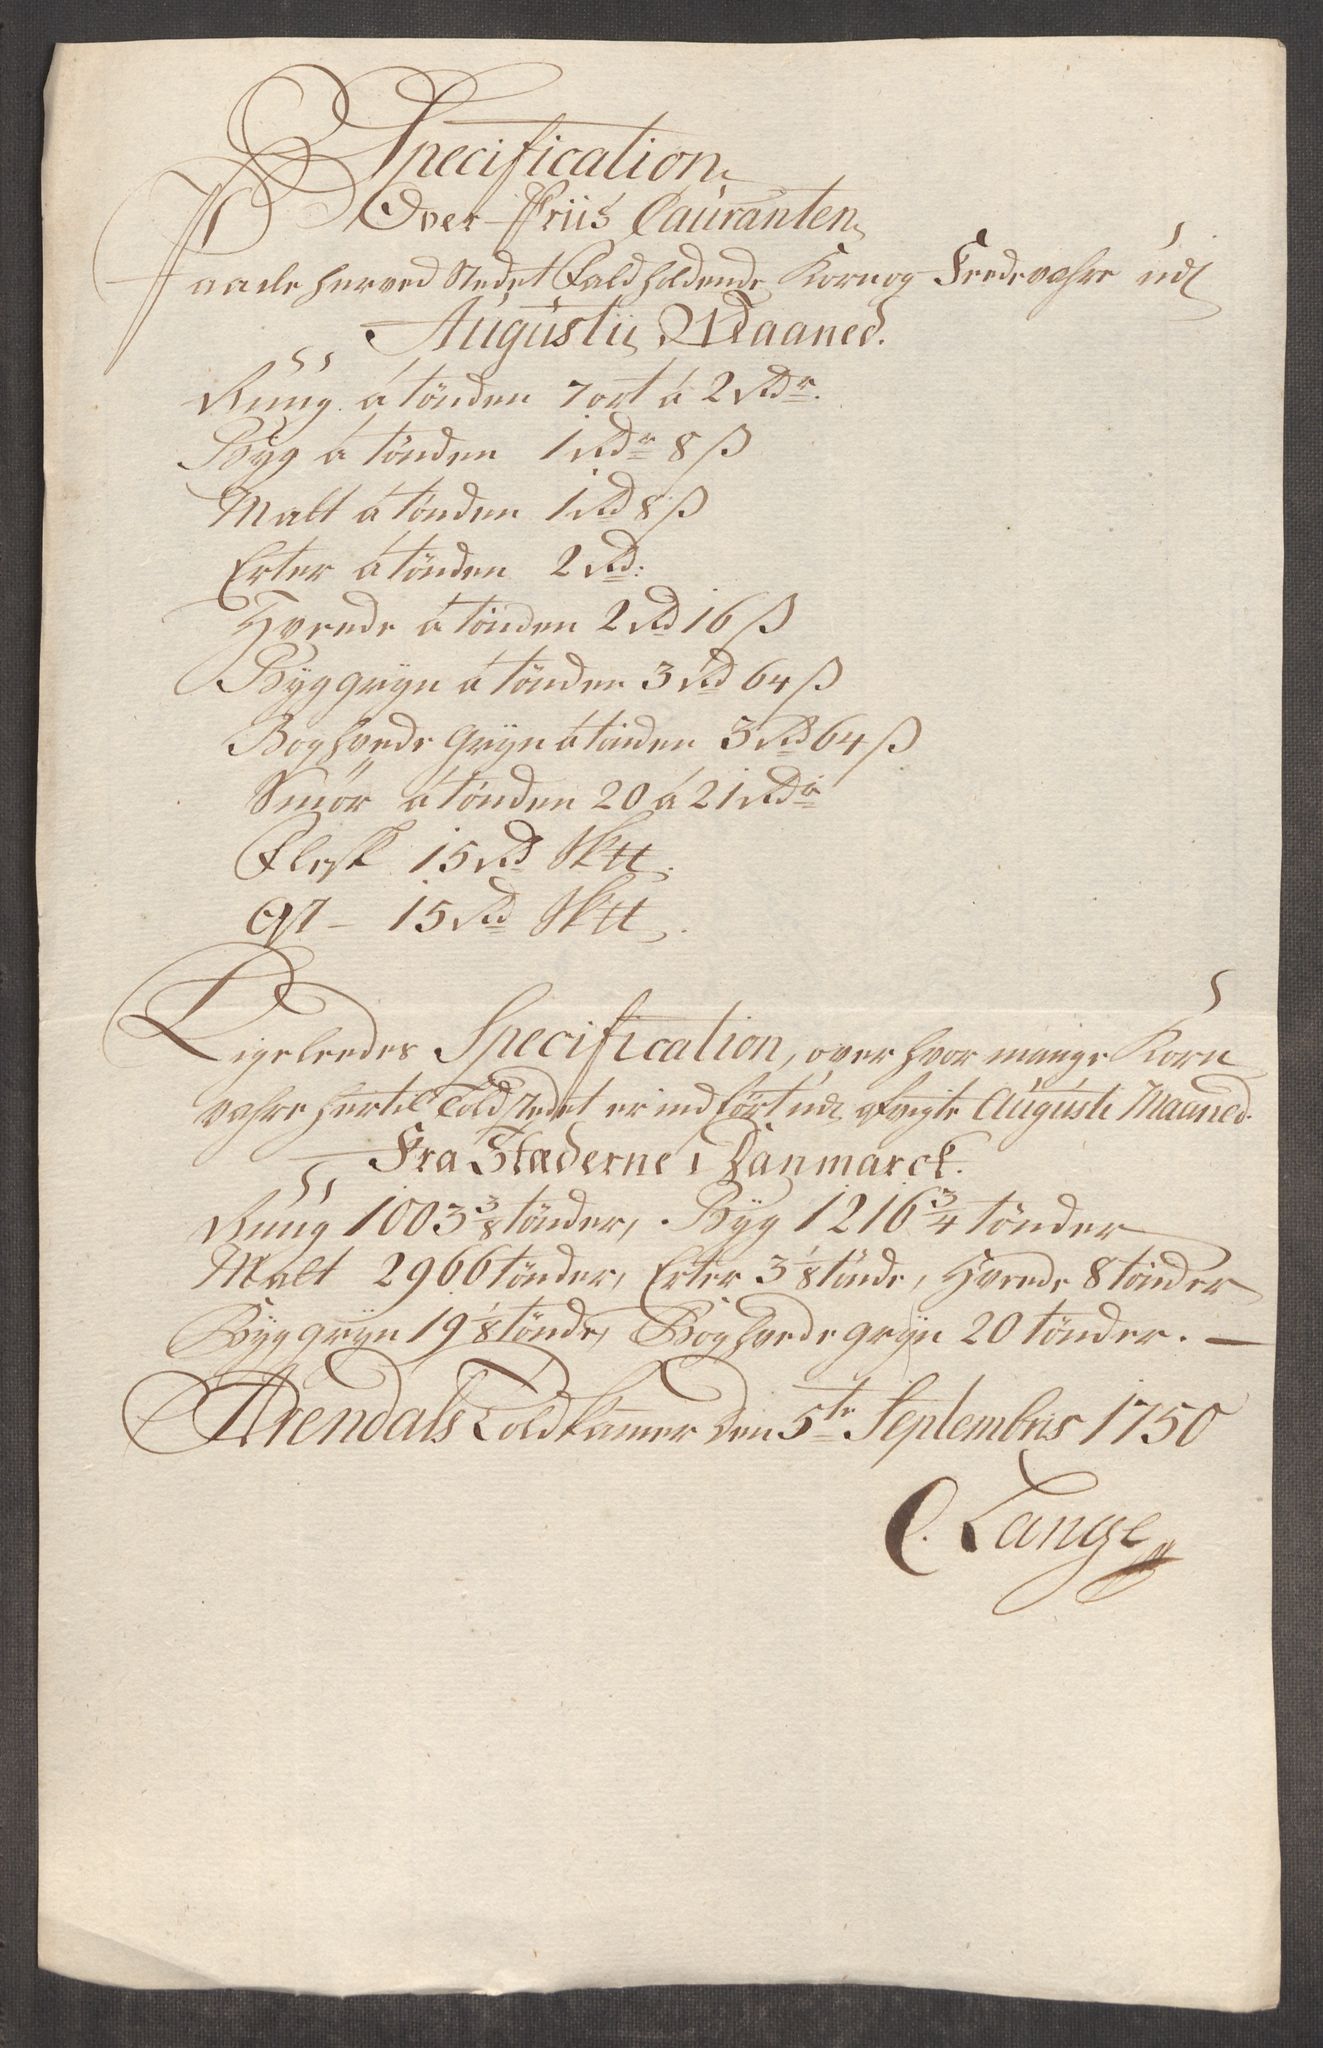 Specification
Over Priis Couranten
Paa de herved Stedet Fald holdende Korn og Feedevahre udi
Augustii Maaned.
Rüug á tönden 7 ort á 2 Rdr.
Byg á tönden 1 Rdr 8 ß
Malt á tönden 1 Rd 8 ß
Erter á tönden 2 Rd:
Hvede á tönden 2 Rd 16 ß
Byggryn á tönden 3 Rd 64 ß
Boghvede Gryn á tönden 3 Rd 64 ß
Smör á tönden 20 á 21 Rdr
Flesk 15 Rd Sk℔.
Ost – 15 Rd Sk℔.
Ligeleedes Specification, over hvor mange Korn
vahre hertil Told Stedet er indført udi Augusti Maaned.
Fra Stæderne i Danmarck.
Rüug 1003 3/8 tönder, Byg 1216 3/4 tönder
Malt 2966 tönder, Erter 3 1/8 tönde, Hvede 8 tönder
Byggryn 19 1/8 tönde, Boghvedegryn 20 tönder. —
Arendals Toldkamer den 5te Septembris 1750
C. Lange